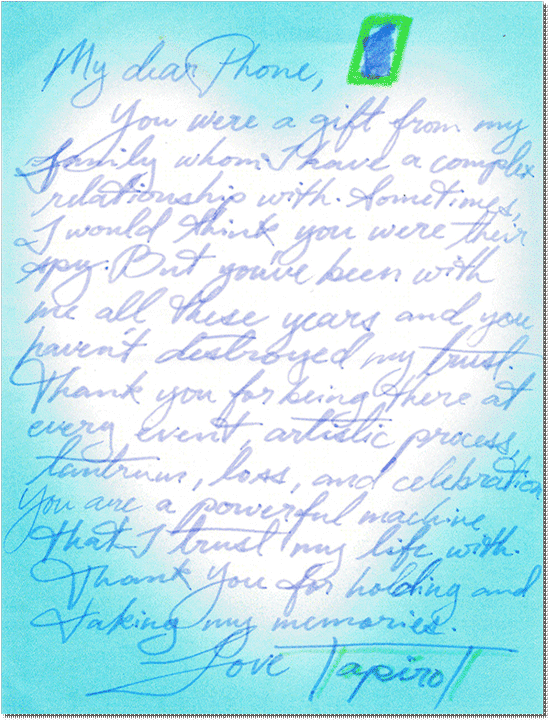 My dear Phone,
You were a gift from my
family whom I have a complex
relationship with. Sometimes,
I would think you were their
spy. But you've been with
me all these years and you
haven't destroyed my trust.
Thank you for being there at
every event, artistic process,
tantrum, loss, and celebration
You are a powerful machine
that I trust my life with.
Thank you for holding and
taking my memories.
Love Tapiro